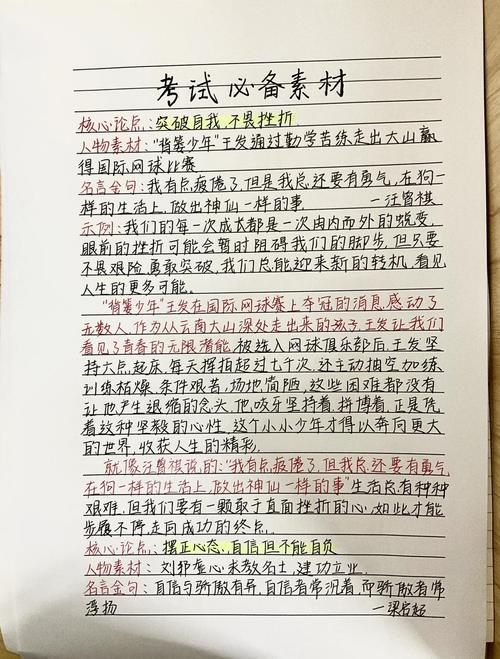 考试必备素材
核心论点:突破自我,不畏挫折
人物素材:"背篓少年"王发通过勤学苦练走出大山赢
得国际网球比赛
名言金句:我有点疲倦了,但是我总还要有勇气,在狗一
样的生活上,做出神仙一样的事 —汪曾祺
示例:我们的每一次成长都是一次由内而外的蜕变,
眼前的挫折可能会暂时阻碍我们的脚步,但只要
不畏艰险,勇敢突破,我们总能迎来新的转机,看见
人生的更多可能.
"背篓少年"王发在国际网球赛上夺冠的消息感动了
无数人,作为从云南大山深处走出来的孩子,王发让我们
看见了青春的无限潜能.被选入网球俱乐部后,王发坚
持六点起床,每天挥拍超过七千次,还主动抽空加练,
训练枯燥,条件艰苦,场地简陋,这些困难都没有
让他产生退缩的念头,他咬牙坚持着,拼搏着,正是凭
着这种坚毅的心性,这个小小少年才得以奔向更大
的世界,收获人生的精彩.
就像汪曾祺说的:"我有点疲倦了,但我总还要有勇气
在狗一样的生活上,做出神仙一样的事"生活总有种种
艰难,但我们要有一颗敢于直面挫折的心,如此才能
步履不停走向成功的终点.
核心论点:摆正心态,自信但不能自负
人物素材:刘邦虚心求教名士,建功立业.
名言金句:自信与骄傲有异,自信者常沉着,而骄傲者常
浮扬 —梁启超